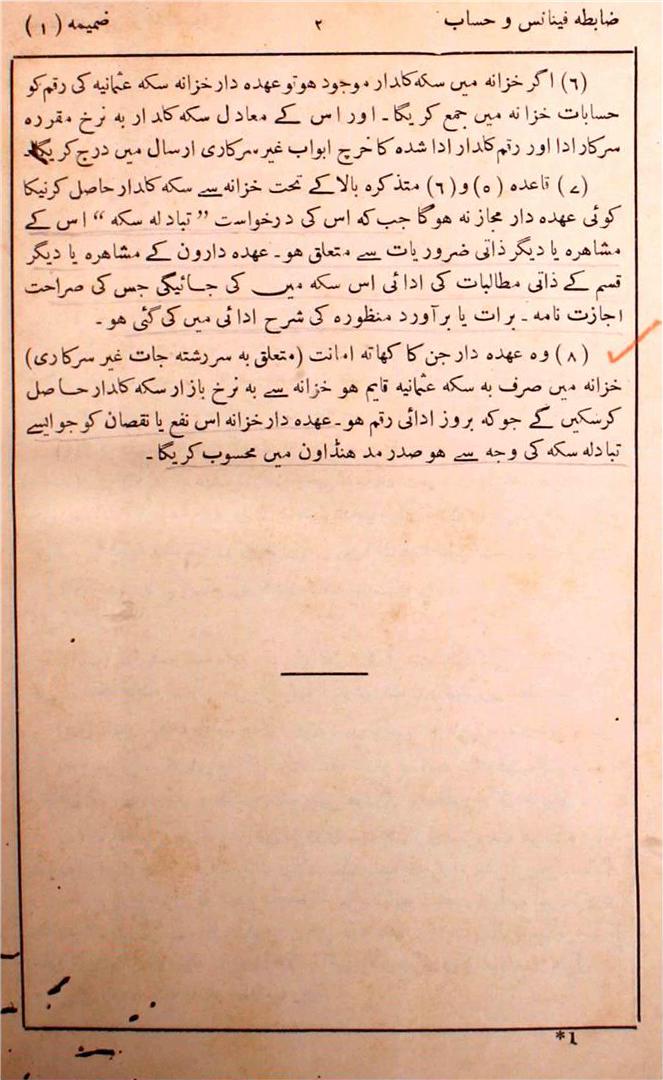 ضابطه فینانس و حساب
۲
ضمیمه (۱)
(٦) اگر خزانه میں سکه کلدار موجود هو تو عهده دار خزانه سکه عثمانیه کی رقم کو
حسابات خزانه میں جمع کریگا۔ اور اس کے معادل سکه کلدار به نرخ مقرره
سرکار ادا اور رقم کلدار ادا شده کا خرچ ابواب غیر سرکاری ارسال میں درج کریگا۔
(۷) قاعده (۵) و (٦) متذکره بالا کے تحت خزانه سے سکه کلدار حاصل کرنیکا
کوئی عهده دار مجاز نه هوگا جب که اس کی درخواست ”تبادله سکه“ اس کے
مشاهره یا دیگر ذاتی ضروریات سے متعلق هو۔ عهده دارون کے مشاهره یا دیگر
قسم کے ذاتی مطالبات کی ادائی اس سکه میں کی جائیگی جس کی صراحت
اجازت نامه۔ برات یا برآورد منظوره کی شرح ادائی میں کی گئی هو۔
(۸) وه عهده دار جن کا کهاته امانت (متعلق به سررشته جات غیر سرکاری)
خزانه میں صرف به سکه عثمانیه قایم هو خزانه سے به نرخ بازار سکه کلدار حاصل
کرسکیں گے جو که بروز ادائی رقم هو۔ عهده دار خزانه اس نفع یا نقصان کو جو ایسے
تبادله سکه کی وجه سے هو صدر مد هنڈاون میں محسوب کریگا۔
1*